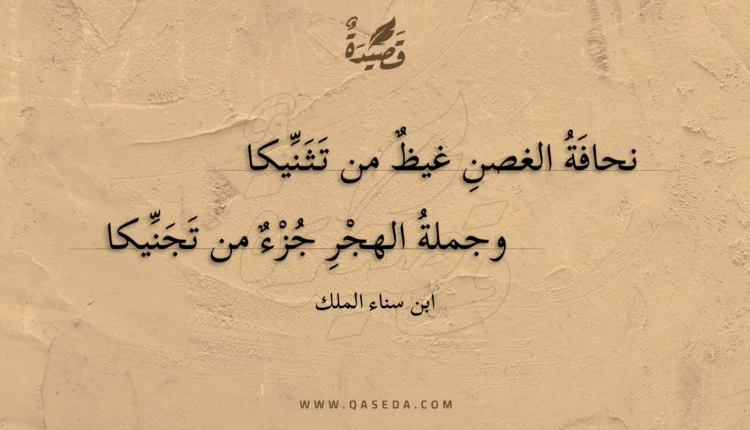 قَصِيدَةٌ
نحافَةُ الغصنِ غيظٌ من تَثَنِّيكا
وجملةُ الهجْرِ جُزْءٌ من تَجَنِّيكا
ابن سناء الملك
WWW.QASEDA.COM